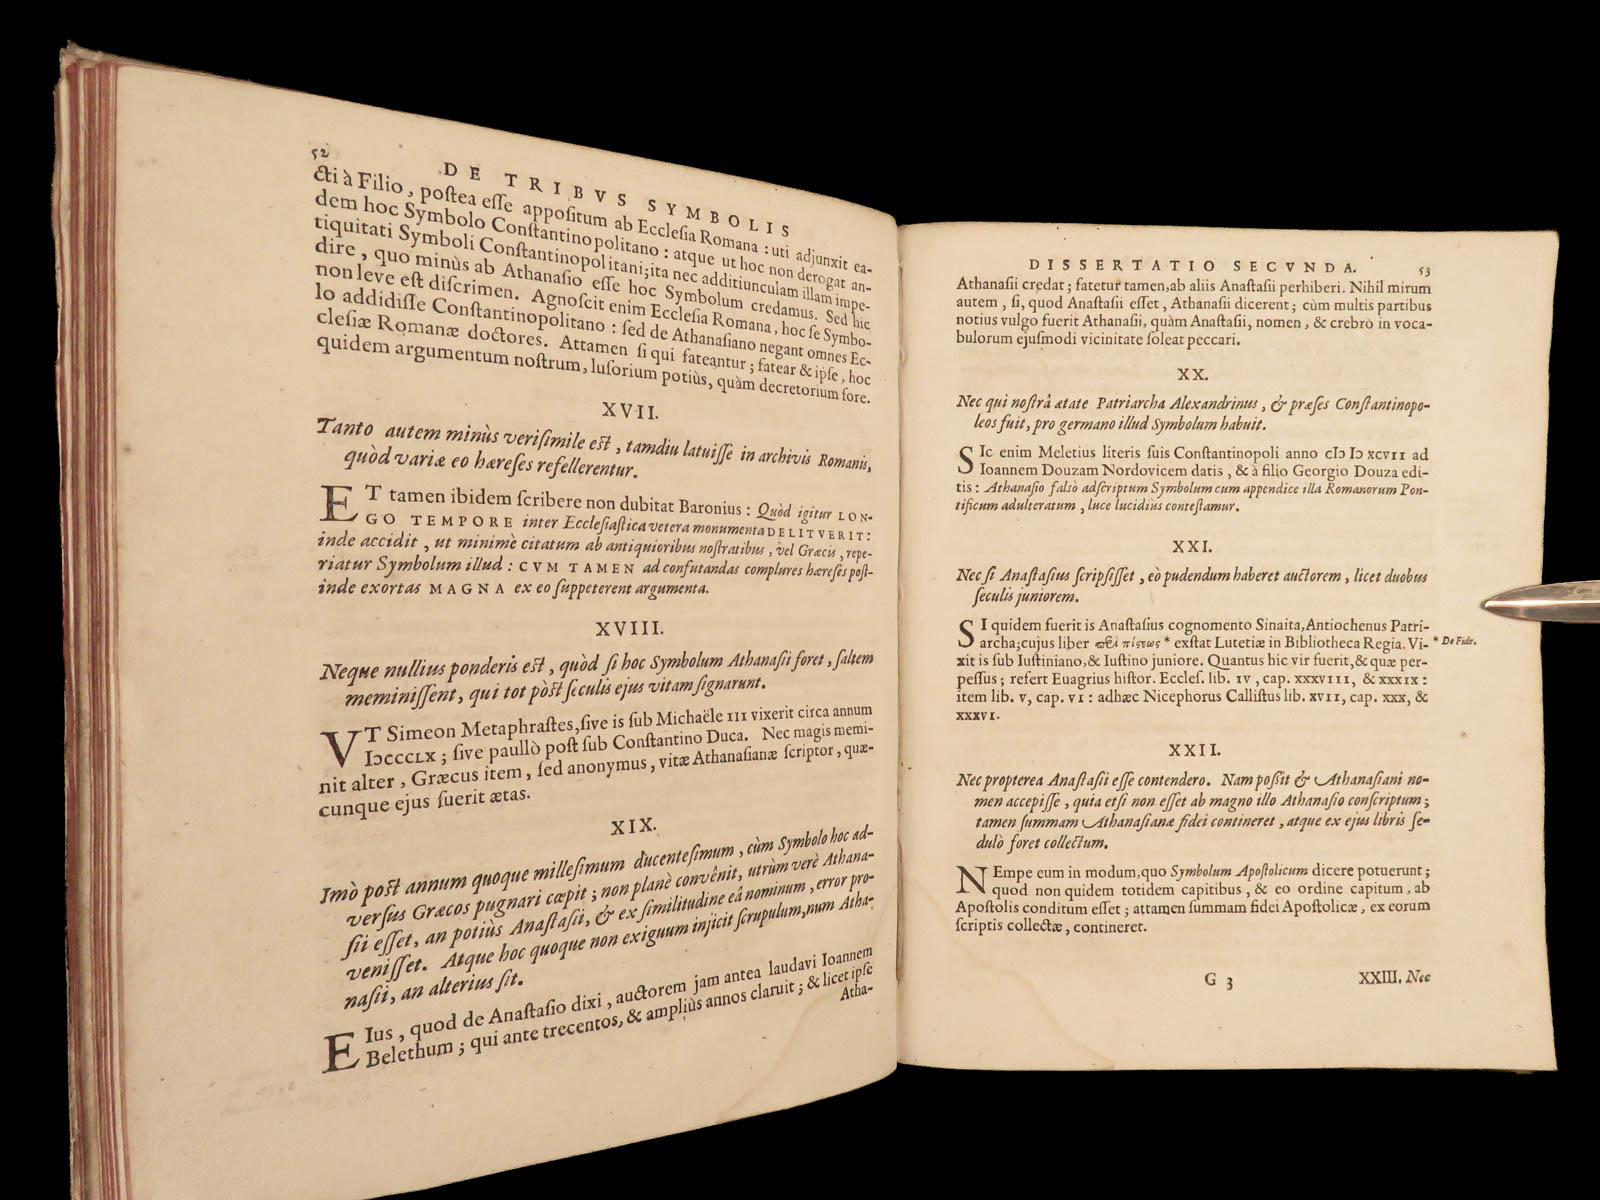 52
DE TRIBVS SYMBOLIS
cti à Filio, postea esse appositum ab Ecclesia Romana : uti adjunxit ea-
dem hoc Symbolo Constantinopolitano : atque ut hoc non derogat an-
tiquitati Symboli Constantinopolitani; ita nec additiunculam illam impe-
dire, quo minùs ab Athanasio esse hoc Symbolum credamus. Sed hic
non leve est discrimen. Agnoscit enim Ecclesia Romana, hoc se Symbo-
lo addidisse Constantinopolitano : sed de Athanasiano negant omnes Ec-
clesiæ Romanæ doctores. Attamen si qui fateantur ; fatear & ipse, hoc
quidem argumentum nostrum, lusorium potiùs, quàm decretorium fore.
XVII.
Tanto autem minùs verisimile est, tamdiu latuisse in archivis Romanis,
quòd variæ eo hæreses refellerentur.
ET tamen ibidem scribere non dubitat Baronius : Quòd igitur LON-
GO TEMPORE inter Ecclesiastica vetera monumenta DELITVERIT:
inde accidit, ut minimè citatum ab antiquioribus nostratibus, vel Græcis, repe-
riatur Symbolum illud : CVM TAMEN ad confutandas complures hæreses post-
inde exortas MAGNA ex eo suppeterent argumenta.
XVIII.
Neque nullius ponderis est, quòd si hoc Symbolum Athanasii foret, saltem
meminissent, qui tot pòst seculis ejus vitam signarunt.
VT Simeon Metaphrastes, sive is sub Michaële III vixerit circa annum
IↃCCCLX ; sive paullò post sub Constantino Duca. Nec magis memi-
nit alter, Græcus item, sed anonymus, vitæ Athanasianæ scriptor, quæ-
cunque ejus fuerit ætas.
XIX.
Imò post annum quoque millesimum ducentesimum, cùm Symbolo hoc ad-
versus Græcos pugnari cœpit ; non planè convênit, utrùm verè Athana-
sii esset, an potiùs Anastasii, & ex similitudine eâ nominum, error pro-
venisset. Atque hoc quoque non exiguum injicit scrupulum, num Atha-
nasii, an alterius sit.
EIus, quod de Anastasio dixi, auctorem jam antea laudavi Ioannem
Belethum ; qui ante trecentos, & ampliùs annos claruit ; & licet ipse
Atha-
DISSERTATIO SECVNDA. 53
Athanasii credat ; fatetur tamen, ab aliis Anastasii perhiberi. Nihil mirum
autem, si, quod Anastasii esset, Athanasii dicerent ; cùm multis partibus
notius vulgo fuerit Athanasii, quàm Anastasii, nomen, & crebrò in voca-
bulorum ejusmodi vicinitate soleat peccari.
XX.
Nec qui nostrâ ætate Patriarcha Alexandrinus, & præses Constantinopo-
leos fuit, pro germano illud Symbolum habuit.
SIc enim Meletius literis suis Constantinopoli anno cIↃ IↃ XCVII ad
Ioannem Douzam Nordovicem datis, & à filio Georgio Douza edi-
tis : Athanasio falsò adscriptum Symbolum cum appendice illa Romanorum Pon-
tificum adulteratum, luce lucidiùs contestamur.
XXI.
Nec si Anastasius scripsisset, eò pudendum haberet auctorem, licet duobus
seculis juniorem.
SI quidem fuerit is Anastasius cognomento Sinaita, Antiochenus Patri-
archa; cujus liber περὶ πίστεως * exstat Lutetiæ in Bibliotheca Regia. Vi-
* De Fide.
xit is sub Iustiniano, & Iustino juniore. Quantus hic vir fuerit, & quæ per-
pessus ; refert Euagrius histor. Eccles. lib. IV, cap. XXXVIII, & XXXIX :
item lib. V, cap. VI : adhæc Nicephorus Callistus lib. XVII, cap. XXX, &
XXXVI.
XXII.
Nec propterea Anastasii esse contendero. Nam possit & Athanasiani no-
men accepisse, quia etsi non esset ab magno illo Athanasio conscriptum ;
tamen summam Athanasianæ fidei contineret, atque ex ejus libris se-
dulò foret collectum.
NEmpe eum in modum, quo Symbolum Apostolicum dicere potuerunt ;
quod non quidem totidem capitibus, & eo ordine capitum, ab
Apostolis conditum esset ; attamen summam fidei Apostolicæ, ex eorum
scriptis collectæ, contineret.
G 3 XXIII. Nec